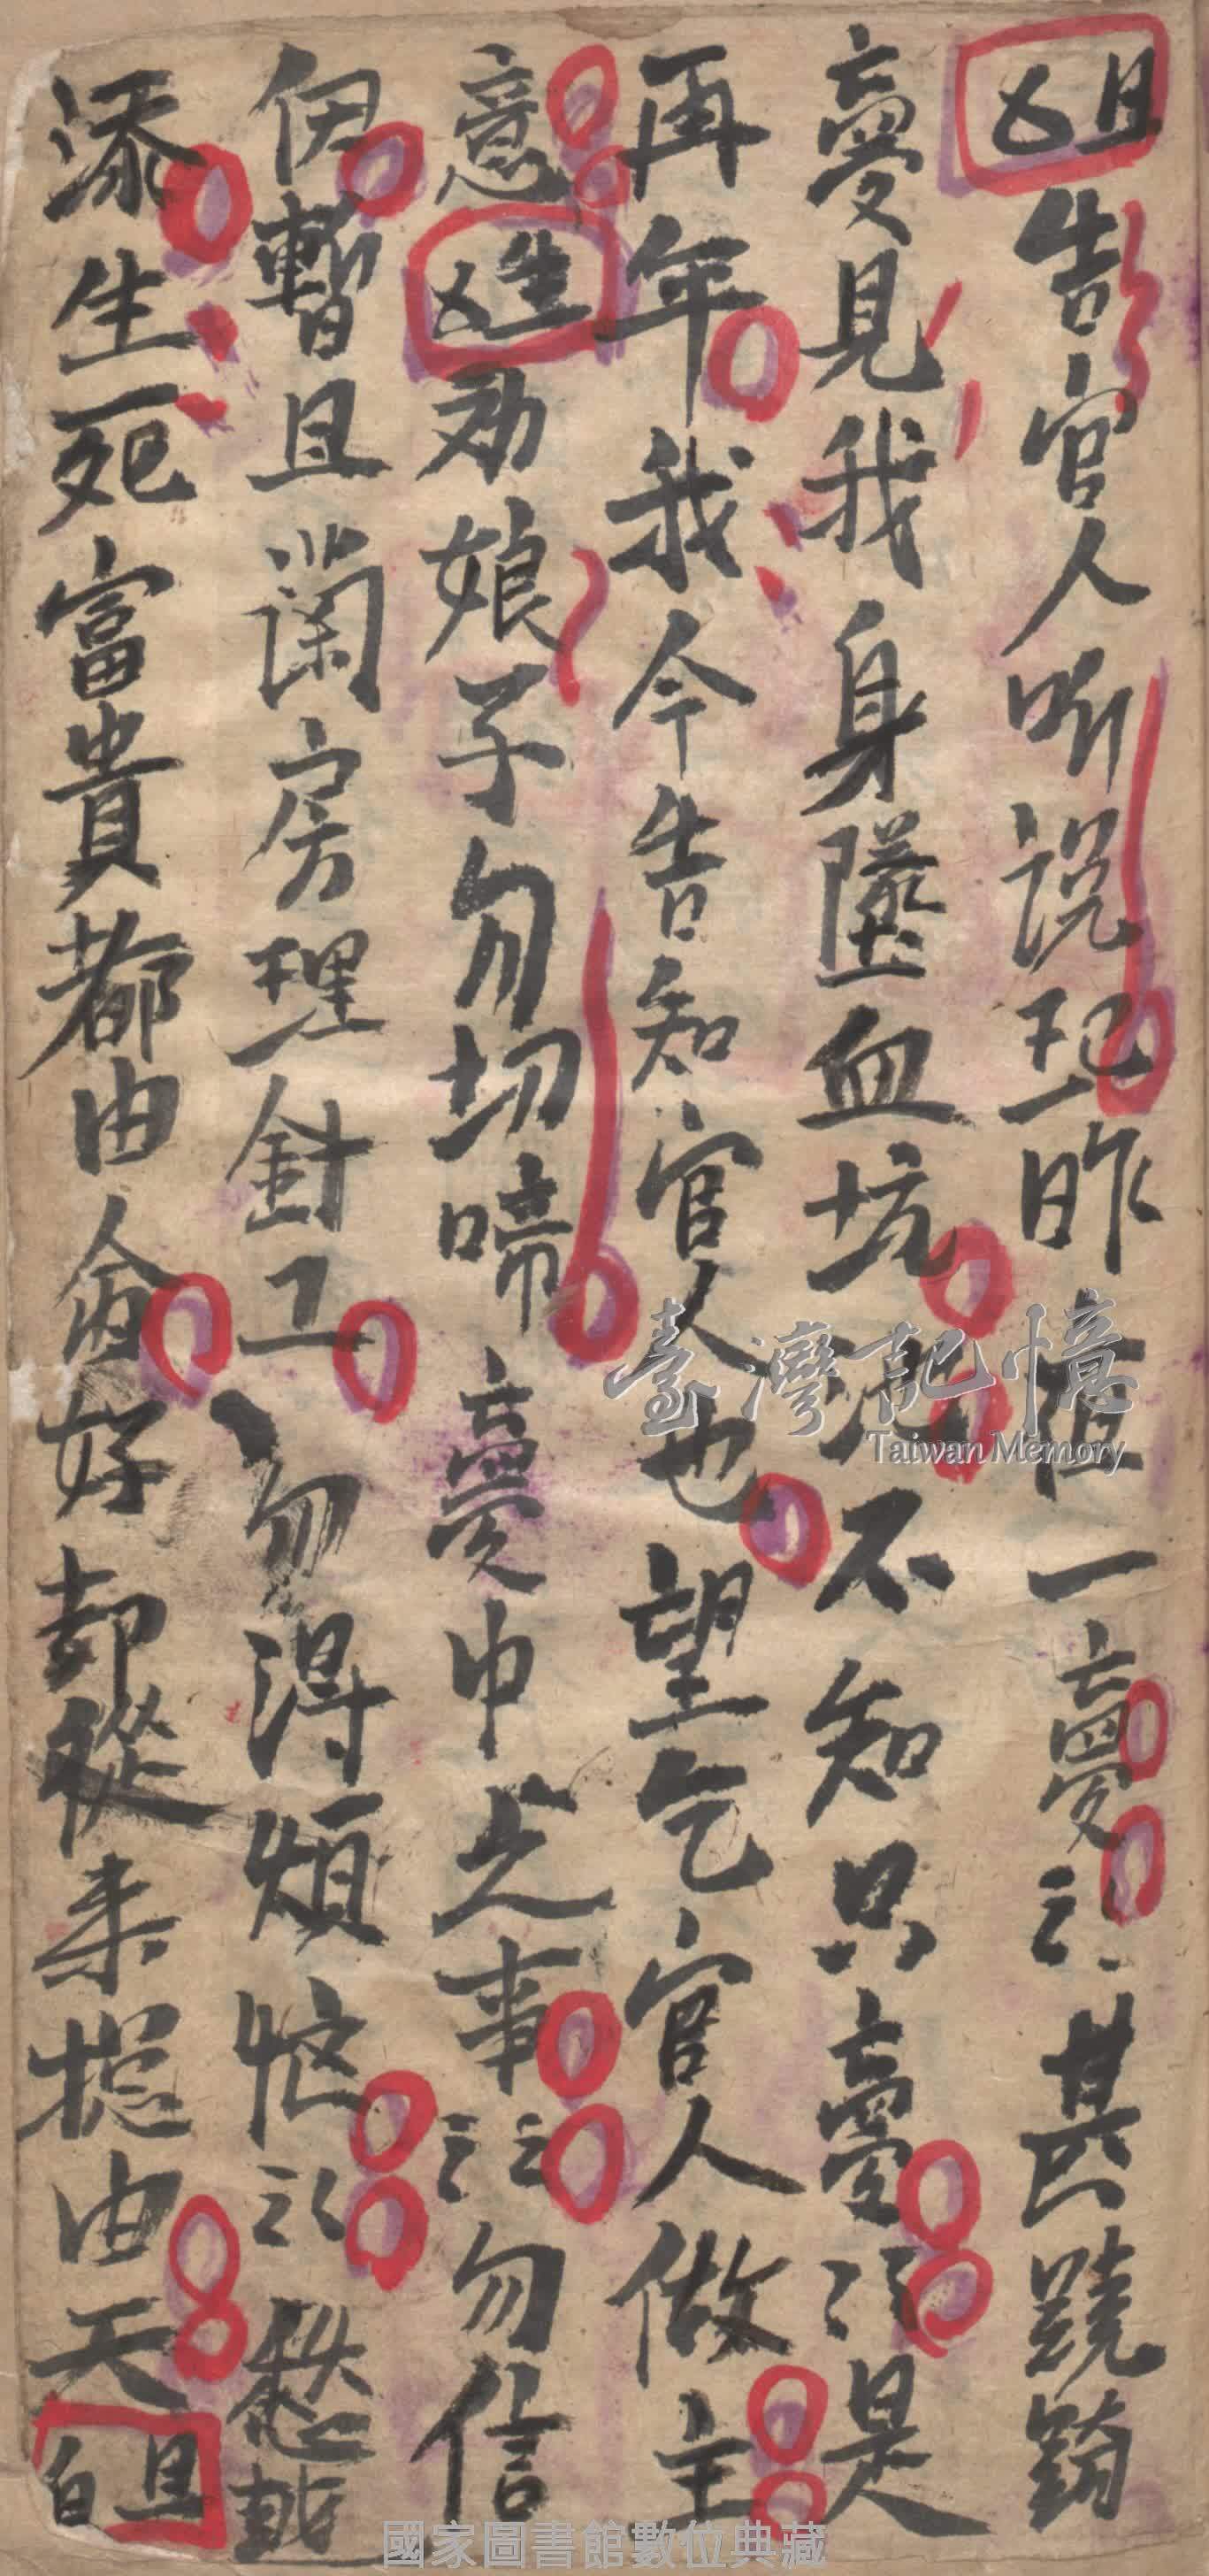 旦告官人听說起昨宵一夢〻甚蹺
夢見我身墜血坑池不知只夢〻是
再年我今告知官人也望乞官人做主
意生劝娘子勿切啼夢中之事〻〻勿信
伊暫且闌房理針工勿得煩忙〻愁
添生死富貴都由命好却從来總由天白旦
臺灣記憶
Taiwan Memory
國家圖書館數位典藏